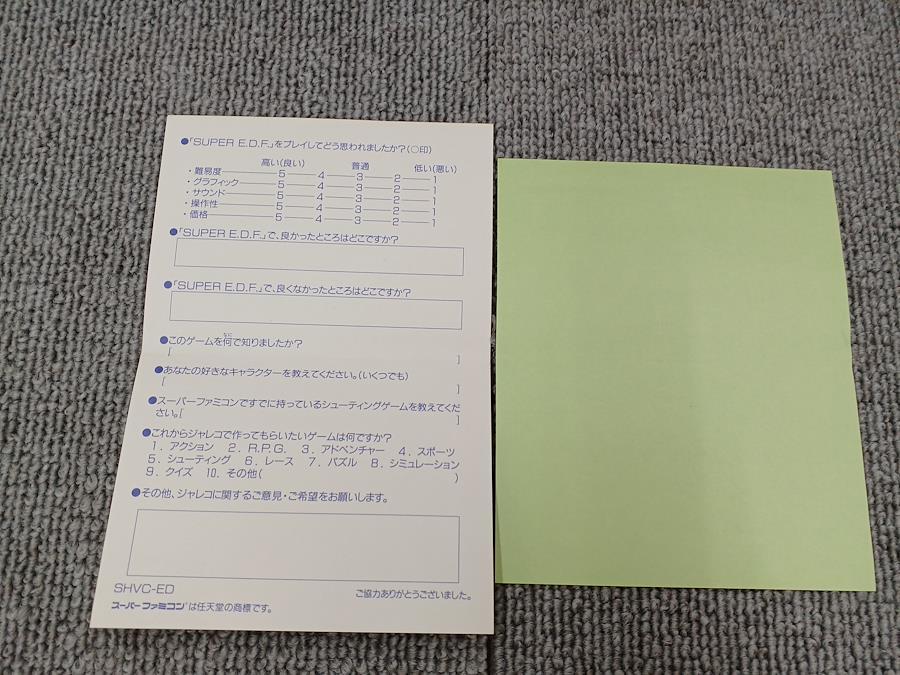 ●「SUPER E.D.F.」をプレイしてどう思われましたか?(○印)
高い(良い) 普通 低い(悪い)
・難易度 5 4 3 2 1
・グラフィック 5 4 3 2 1
・サウンド 5 4 3 2 1
・操作性 5 4 3 2 1
・価格 5 4 3 2 1
●「SUPER E.D.F.」で、良かったところはどこですか?
●「SUPER E.D.F.」で、良くなかったところはどこですか?
●このゲームを何で知りましたか?
[ ]
●あなたの好きなキャラクターを教えてください。(いくつでも)
[ ]
●スーパーファミコンですでに持っているシューティングゲームを教えてくだ
さい。[ ]
●これからジャレコで作ってもらいたいゲームは何ですか?
1. アクション 2. R.P.G. 3. アドベンチャー 4. スポーツ
5. シューティング 6. レース 7. パズル 8. シミュレーション
9. クイズ 10. その他( )
●その他、ジャレコに関するご意見・ご希望をお願いします。
SHVC-ED
ご協力ありがとうございました。
スーパーファミコンは任天堂の商標です。